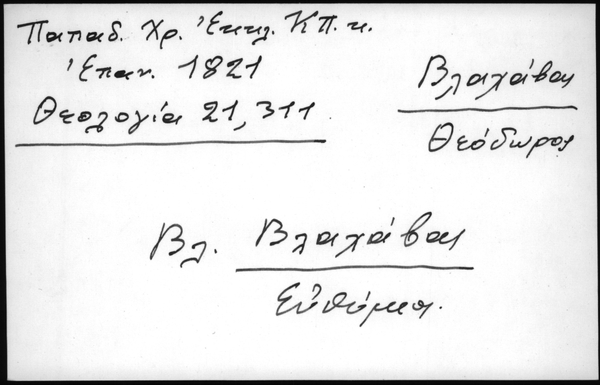 Παπαδ. Χρ. Ἐκκλ. ΚΠ. κ.
Ἐπαν. 1821
Θεολογία 21,311
Βλαχάβας
Θεόδωρος
Βλ. Βλαχάβας
Εὐθύμιος.